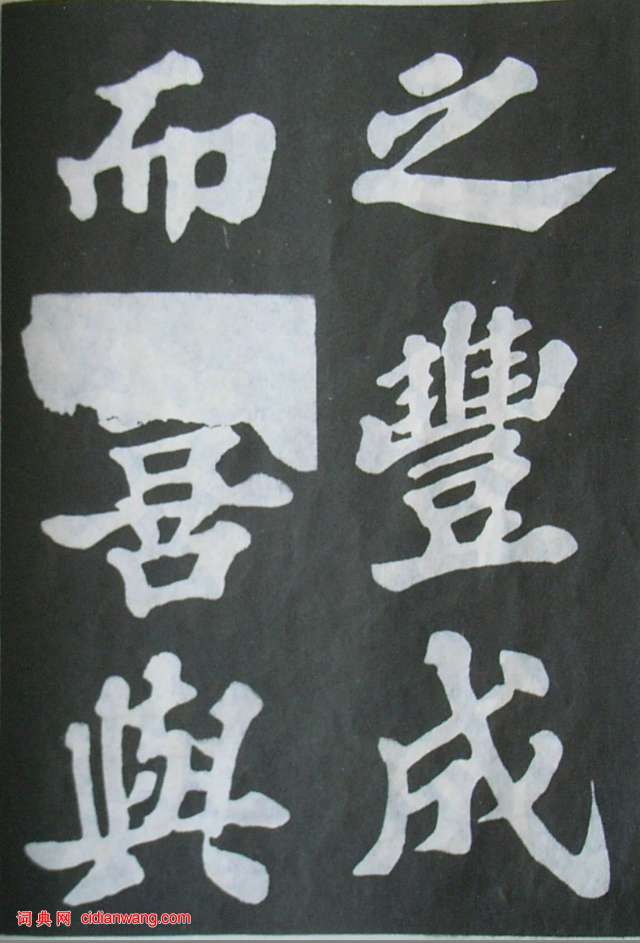 之豐成
而喜與
词典网 cidianwang.com